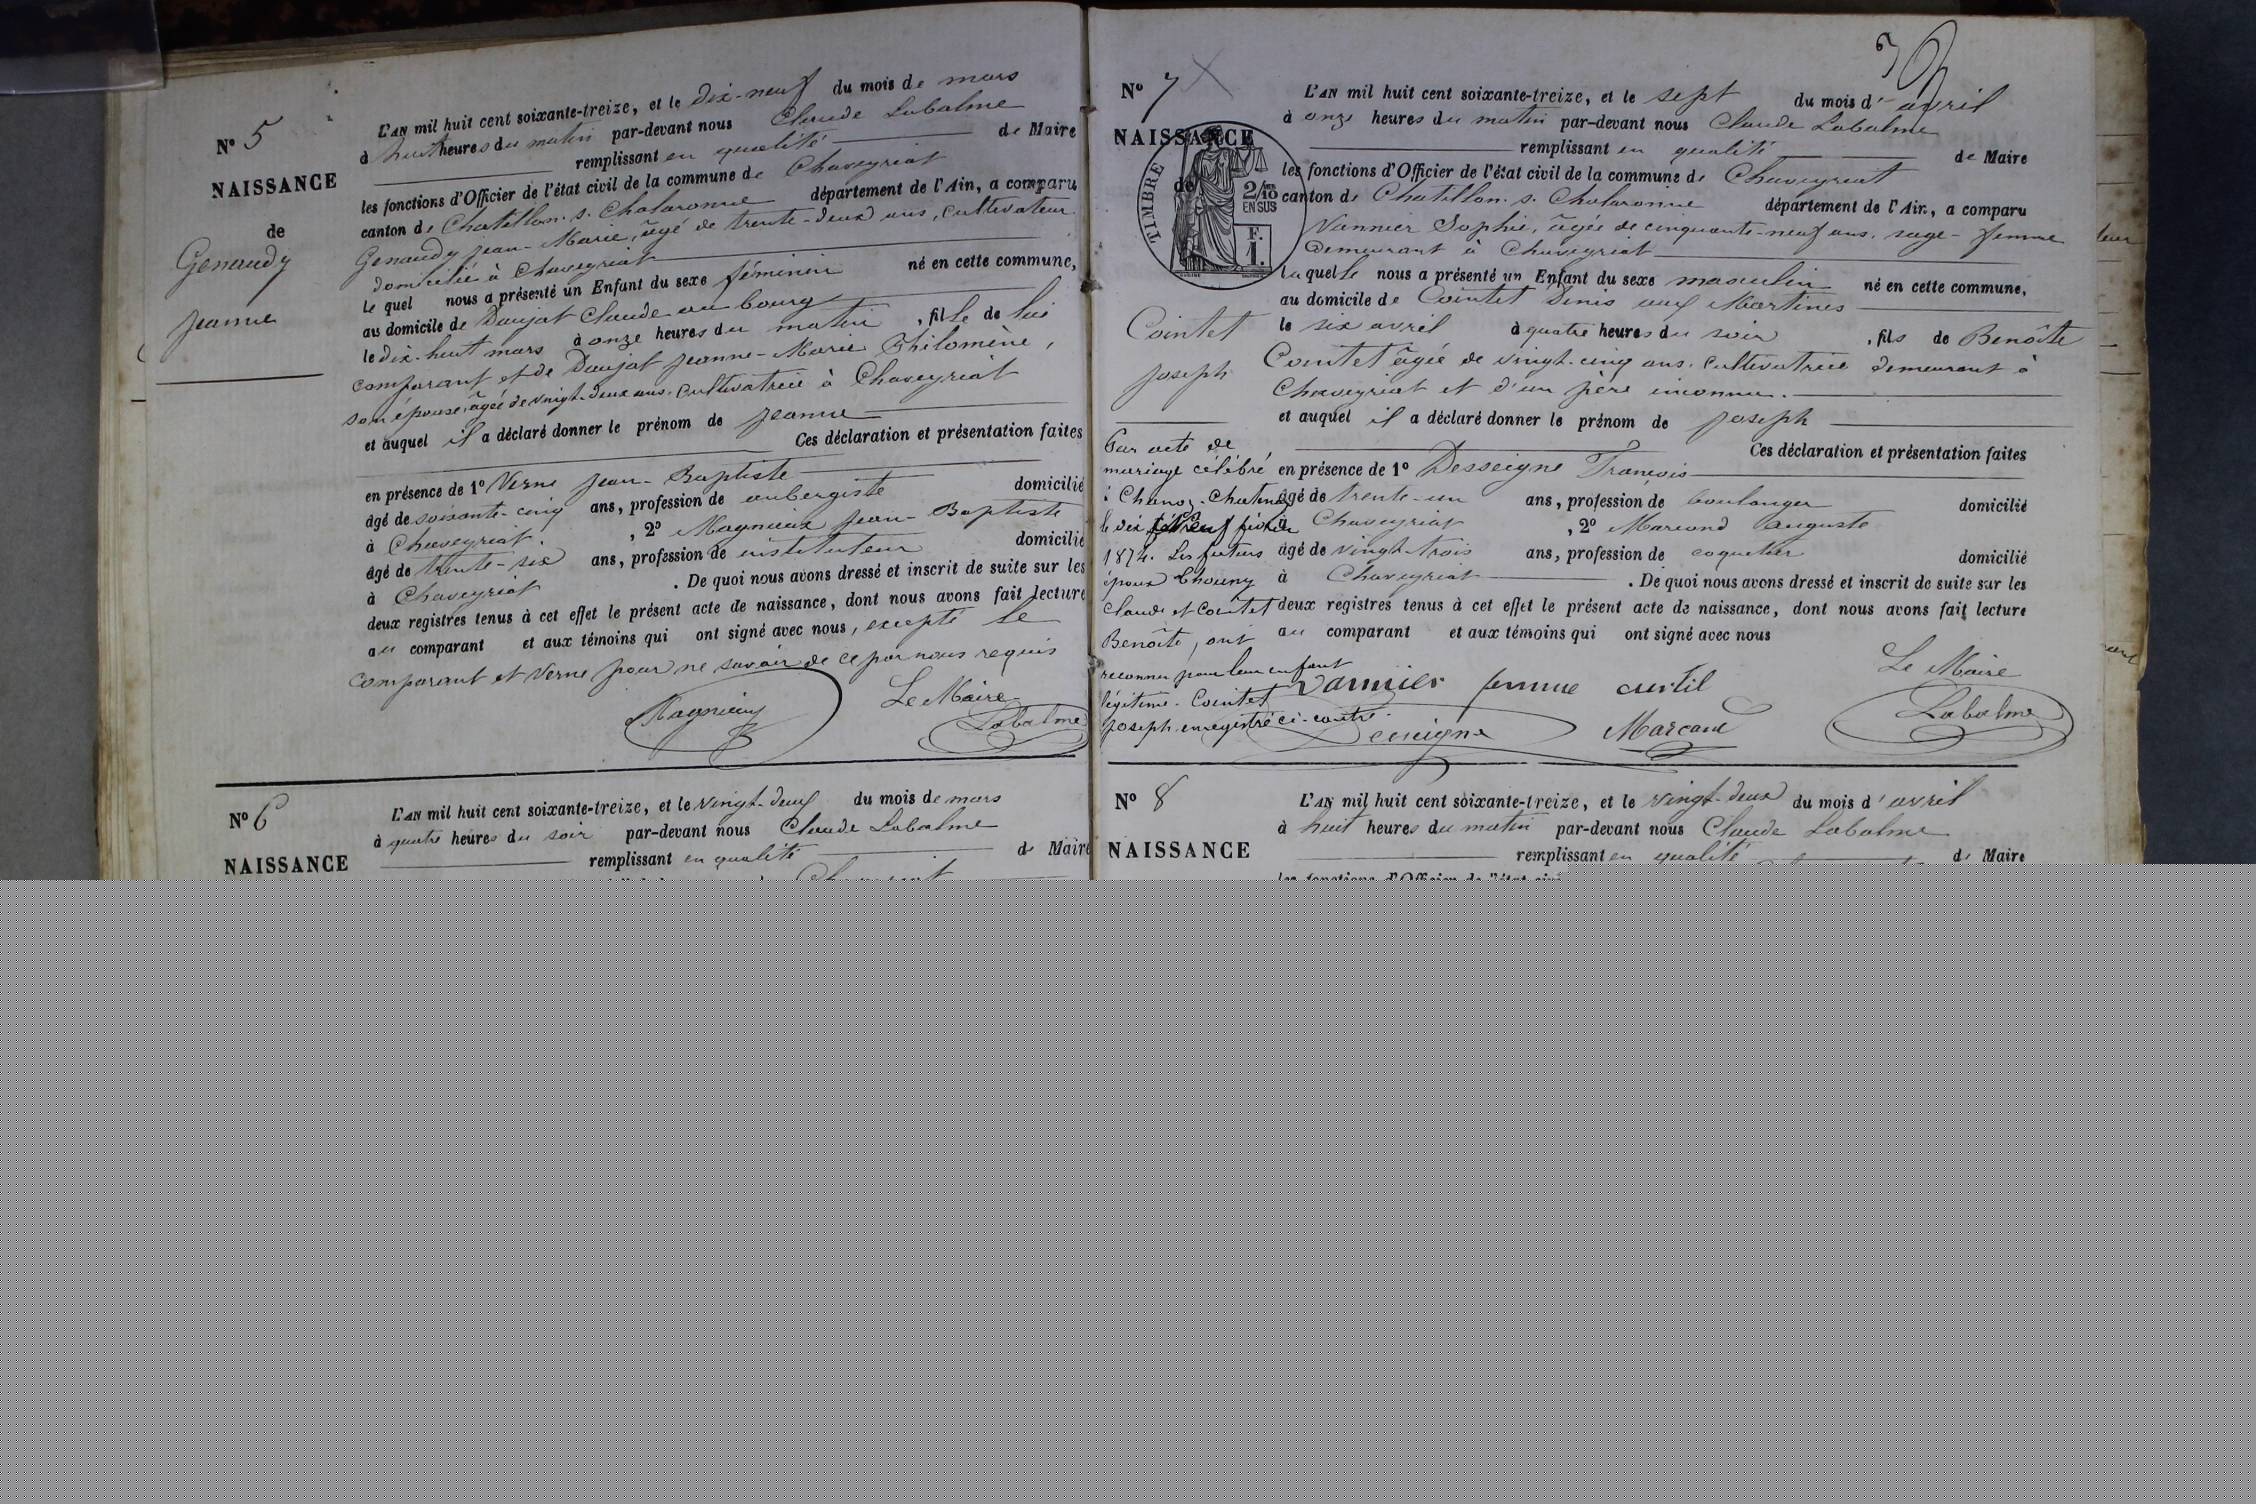 N° 5
NAISSANCE
de
Genaudy
Jeanne
L'AN mil huit cent soixante-treize, et le dix-neuf du mois de mars
à huit heures du matin par-devant nous Claude Labalme
remplissant en qualité de Maire
les fonctions d'Officier de l'état civil de la commune de Chaveyriat
canton de Chatillon. s. Chalaronne département de l'Ain, a comparu
Genaudy Jean-Marie, âgé de trente-deux ans, cultivateur
domicilié à Chaveyriat
le quel nous a présenté un Enfant du sexe féminin né en cette commune,
au domicile de Daujat Claude au bourg
le dix-huit mars à onze heures du matin, fille de lui
comparant et de Daujat Jeanne-Marie Philomène,
son épouse, âgée de vingt-deux ans, cultivatrice à Chaveyriat
et auquel il a déclaré donner le prénom de Jeanne
Ces déclaration et présentation faites
en présence de 1° Verne Jean-Baptiste
âgé de soixante-cinq ans, profession de aubergiste domicilié
à Chaveyriat. , 2° Magnieux Jean-Baptiste
âgé de trente-six ans, profession de instituteur domicilié
à Chaveyriat . De quoi nous avons dressé et inscrit de suite sur les
deux registres tenus à cet effet le présent acte de naissance, dont nous avons fait lecture
au comparant et aux témoins qui ont signé avec nous, excepté le
comparant et Verne pour ne savoir de ce par nous requis
Le Maire
Magnieux
Labalme
N° 6
NAISSANCE
L'AN mil huit cent soixante-treize, et le vingt-deux du mois de mars
à quatre heures du soir par-devant nous Claude Labalme
remplissant en qualité de Maire
N° 7
NAISSANCE
de
TIMBRE
2/10 EN SUS
F. 1.
Cointet
Joseph
L'AN mil huit cent soixante-treize, et le sept du mois d'avril
à onze heures du matin par-devant nous Claude Labalme
remplissant en qualité de Maire
les fonctions d'Officier de l'état civil de la commune de Chaveyriat
canton de Chatillon. s. Chalaronne département de l'Ain, a comparu
Vannier Sophie, âgée de cinquante-neuf ans, sage-femme
demeurant à Chaveyriat
laquelle nous a présenté un Enfant du sexe masculin né en cette commune,
au domicile de Cointet Denis aux Martines
le six avril à quatre heures du soir, fils de Benoîte
Cointet âgée de vingt-cinq ans, cultivatrice demeurant à
Chaveyriat et d'un père inconnu.
et auquel il a déclaré donner le prénom de Joseph
Ces déclaration et présentation faites
en présence de 1° Desseigne François
âgé de trente-un ans, profession de boulanger domicilié
à Chaveyriat , 2° Marcand Auguste
âgé de vingt-trois ans, profession de coquetier domicilié
à Chaveyriat . De quoi nous avons dressé et inscrit de suite sur les
deux registres tenus à cet effet le présent acte de naissance, dont nous avons fait lecture
au comparant et aux témoins qui ont signé avec nous
Par acte de
mariage célébré
à Chanoz-Chatenay
le dix février
1874. Les futurs
époux Thouny
Claude et Cointet
Benoîte, ont
reconnu pour leur enfant
légitime. Cointet
Joseph enregistré ci-contre.
Le Maire
Vannier femme curtil
Labalme
Desseigne
Marcand
N° 8
NAISSANCE
L'AN mil huit cent soixante-treize, et le vingt-deux du mois d'avril
à huit heures du matin par-devant nous Claude Labalme
remplissant en qualité de Maire